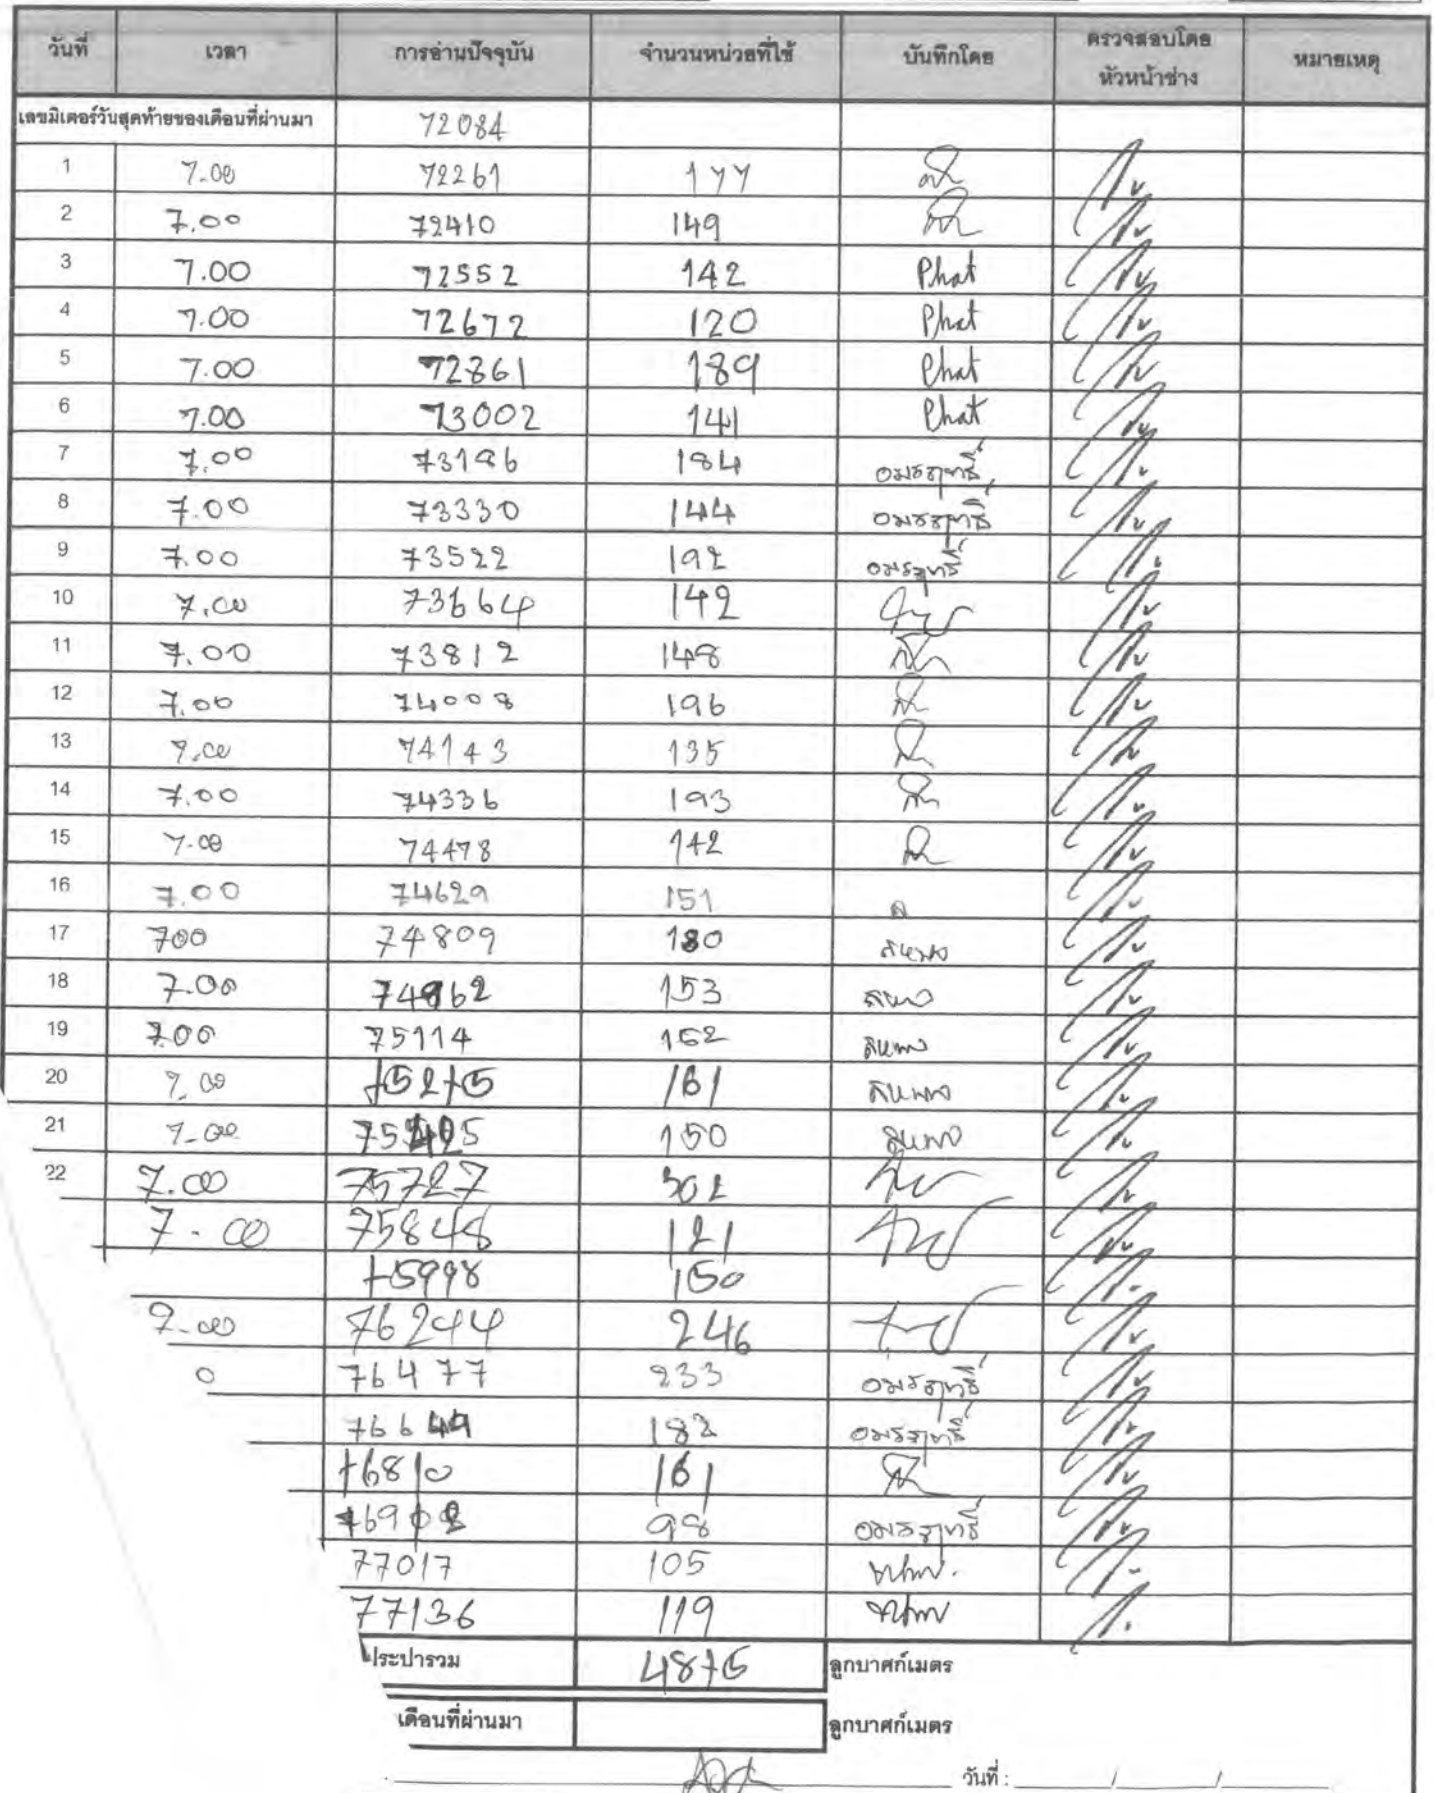 วันที่ เวลา การอ่านปัจจุบัน จำนวนหน่วยที่ใช้ บันทึกโดย ตรวจสอบโดย หัวหน้าช่าง หมายเหตุ
เลขมิเตอร์วันสุดท้ายของเดือนที่ผ่านมา 72084
1 7.00 72261 177
2 7.00 72410 149
3 7.00 72552 142 Phat
4 7.00 72672 120 Phat
5 7.00 72861 189 Phat
6 7.00 73002 141 Phat
7 7.00 73186 184 อมรฤทธิ์
8 7.00 73330 144 อมรฤทธิ์
9 7.00 73522 192 อมรฤทธิ์
10 7.00 73664 142
11 7.00 73812 148
12 7.00 74008 196
13 7.00 74143 135
14 7.00 74336 193
15 7.00 74478 142
16 7.00 74629 151
17 700 74809 180
18 7.00 74962 153
19 7.00 75114 152
20 7.00 75275 161
21 7.00 75425 150
22 7.00 75727 302
7.00 75848 121
75998 150
7.00 76244 246
0 76477 233 อมรฤทธิ์
76649 182 อมรฤทธิ์
76810 161
76908 98 อมรฤทธิ์
77017 105
77136 119
ประปารวม 4875 ลูกบาศก์เมตร
เดือนที่ผ่านมา ลูกบาศก์เมตร
วันที่ : / /